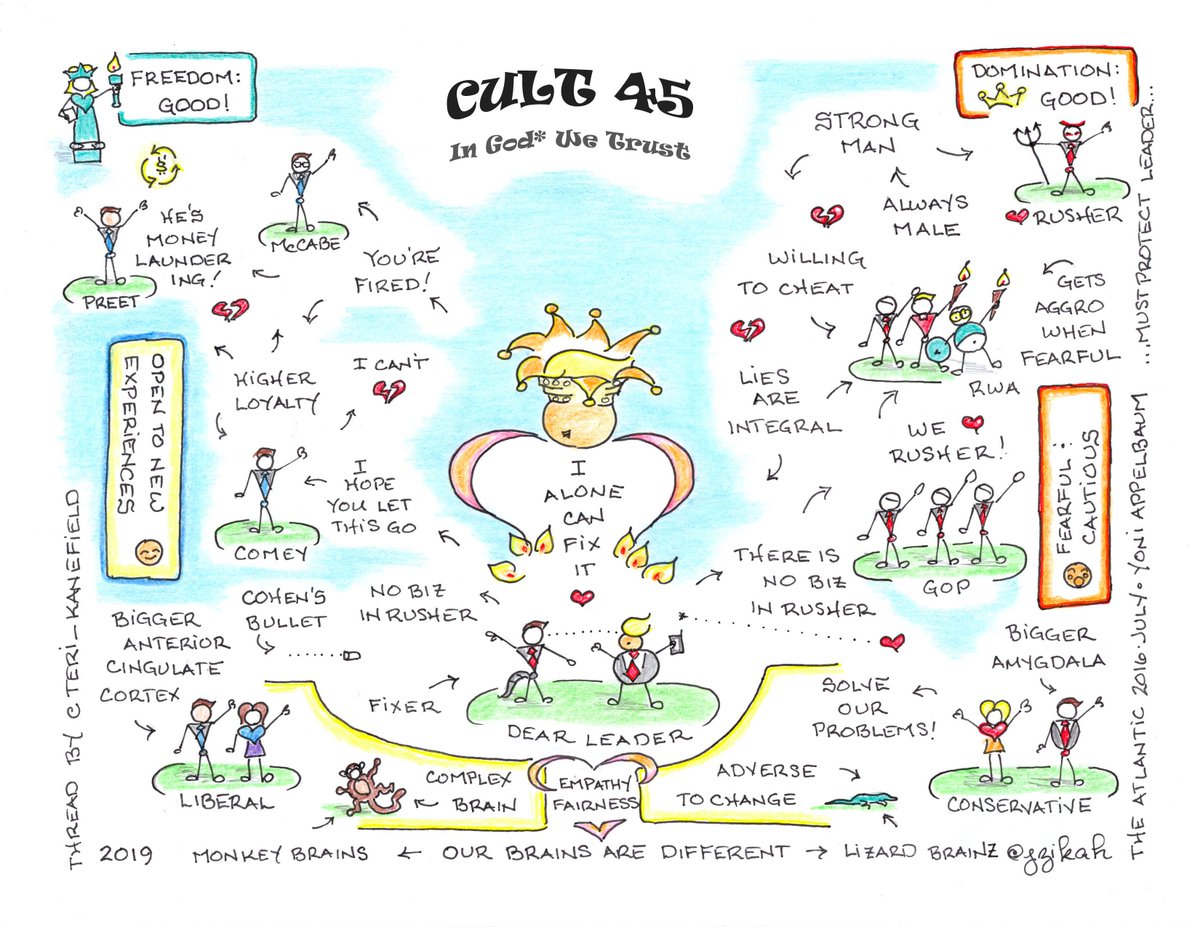 CULT 45
In God* We Trust
FREEDOM:
GOOD!
$
PREET
HE'S
MONEY
LAUNDER
ING!
McCABE
YOU'RE
FIRED!
OPEN TO NEW
EXPERIENCES
HIGHER
LOYALTY
I CAN'T
COMEY
I
HOPE
YOU LET
THIS GO
COHEN'S
BULLET
NO BIZ
IN RUSHER
BIGGER
ANTERIOR
CINGULATE
CORTEX
FIXER
LIBERAL
COMPLEX
BRAIN
I
ALONE
CAN
FIX
IT
DEAR LEADER
EMPATHY
FAIRNESS
DOMINATION:
GOOD!
STRONG
MAN
ALWAYS
MALE
RUSHER
WILLING
TO CHEAT
GETS
AGGRO
WHEN
FEARFUL
RWA
LIES
ARE
INTEGRAL
WE
RUSHER!
GOP
FEARFUL:
CAUTIOUS
THERE IS
NO BIZ
IN RUSHER
BIGGER
AMYGDALA
SOLVE
OUR
PROBLEMS!
ADVERSE
TO CHANGE
CONSERVATIVE
THREAD BY @TERI_KANEFIELD
THE ATLANTIC 2016·JULY·YONI APPELBAUM ...MUST PROTECT LEADER...
2019 MONKEY BRAINS ← OUR BRAINS ARE DIFFERENT → LIZARD BRAINZ @jzikah